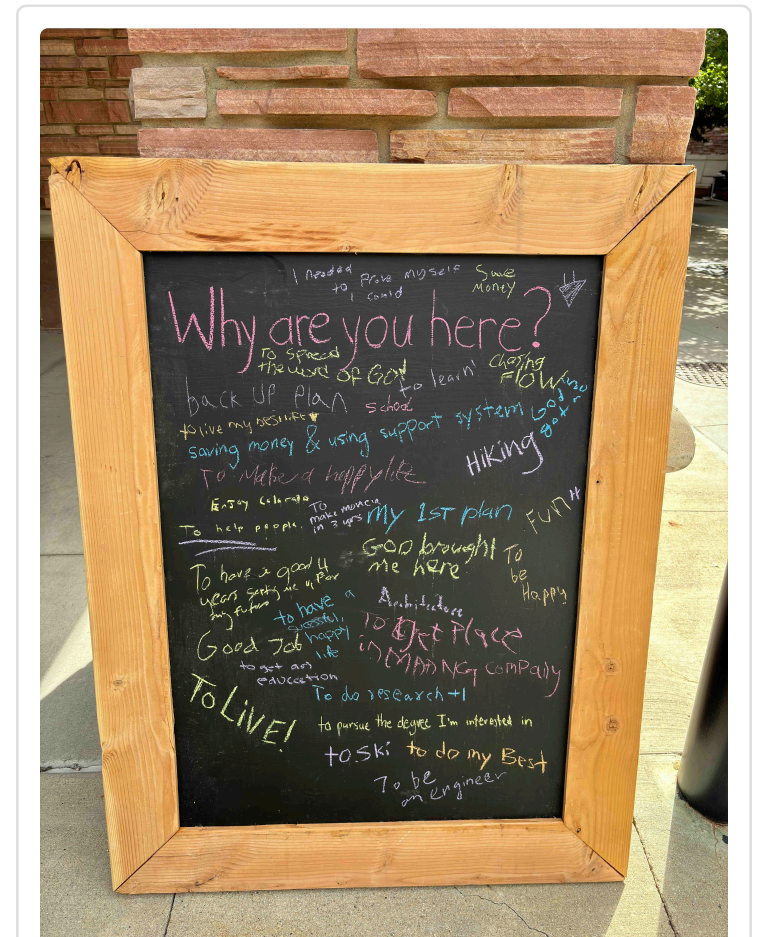 I needed
to Prove myself
I could
Save
Money
Why are you here?
To spread
the word of GOD
to learn!
Chasing
FLOW
back UP plan
school
to live my best life
saving money & using support system
God
got
HiKing
To Make a happy life
Enjoy Colorado
To
make money
in 3 yrs
My 1st plan
Fun
To help people.
GOD brought
me here
To
be
Happy
To have a good 4
years setting me up for
my future
Architecture
to have a
sucessful,
happy
life
To Get Place
in MAANG company
Good Job
to get an
education
To LiVE!
To do research +1
to pursue the degree I'm interested in
to Ski
to do my Best
To be
an engineer